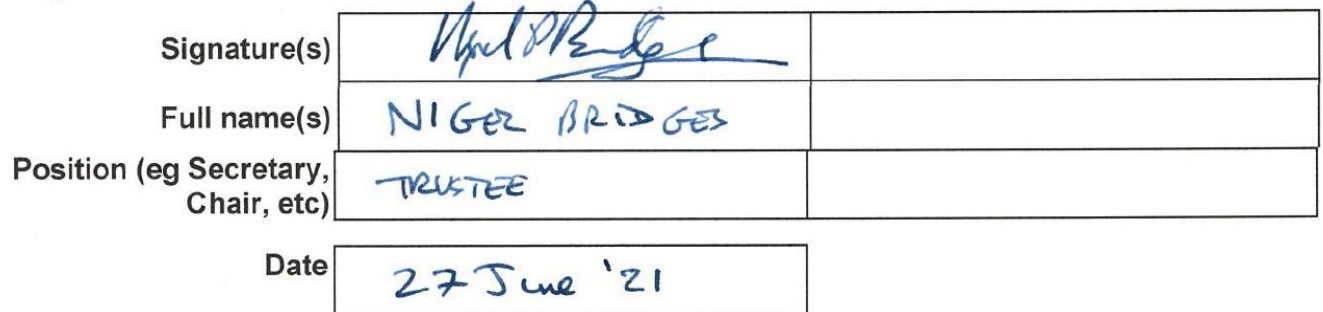 Signature(s)
Full name(s) NIGEL BRIDGES
Position (eg Secretary,
Chair, etc) TRUSTEE
Date 27 June '21